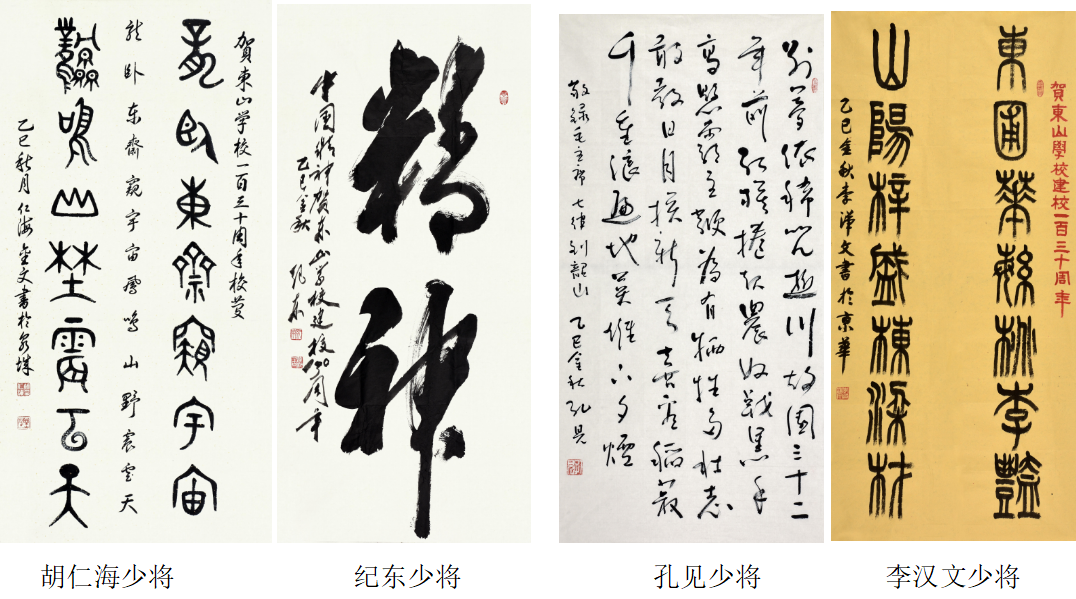 賀東山学校一百三十周年校慶
龍臥東齋窺宇宙
龙卧东斋窥宇宙凤鸣山野震云天
鳳鳴山埜震雲天
乙巳秋月仁海金文書於
精神
中国精神贺东山学校建校130周年
乙巳金秋 纪东
别夢依稀咒逝川故園三十二
年前红旗捲起農奴戟黑手
高懸霸主鞭為有牺牲多壮志
敢教日月换新天喜看稻菽
千重浪遍地英雄下夕煙
敬録毛主席七律到韶山 乙巳金秋孔見
賀東山學校建校一百三十周年
東圃華繁桃李豔
山陽梓盛棟梁材
乙巳金秋李漢文書於京華
胡仁海少将
纪东少将
孔见少将
李汉文少将